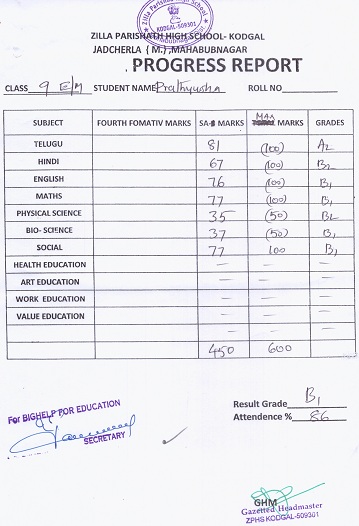 Zilla Parishad High School
KODGAL-509301
ZILLA PARISHATH HIGH SCHOOL- KODGAL
JADCHERLA (M.) ,MAHABUBNAGAR
PROGRESS REPORT
CLASS 9 E/M STUDENT NAME Prathyusha ROLL NO
SUBJECT FOURTH FOMATIV MARKS SA- MARKS MAX MARKS GRADES
TELUGU 81 (100) A2
HINDI 67 (100) B2
ENGLISH 76 (100) B1
MATHS 77 (100) B1
PHYSICAL SCIENCE 35 (50) B2
BIO- SCIENCE 37 (50) B1
SOCIAL 77 100 B1
HEALTH EDUCATION — — —
ART EDUCATION — — —
WORK EDUCATION — — —
VALUE EDUCATION — — —
— — —
450 600
Result Grade B1
Attendence % 86
For BIGHELP FOR EDUCATION
SECRETARY
GHM
Gazetted Headmaster
ZPHS KODGAL-509301